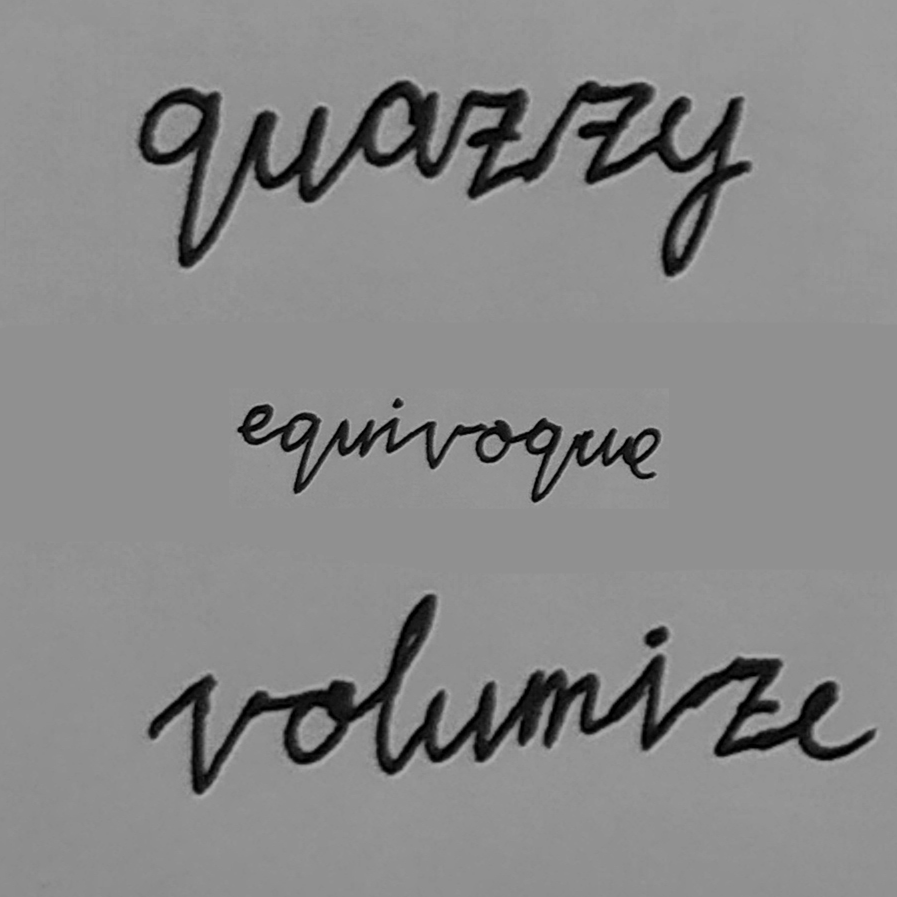 quazzy
equivoque
volumize